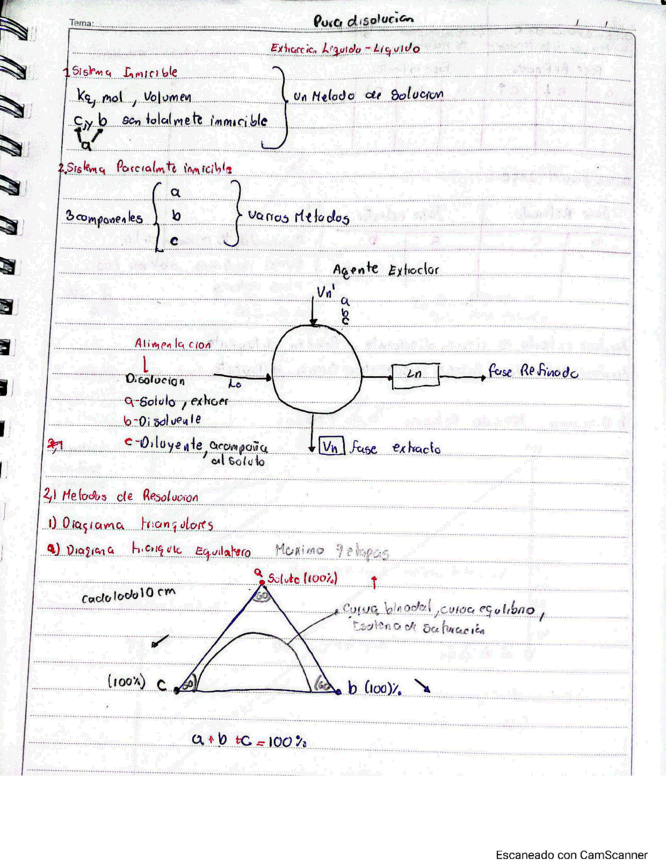 Tema: Pura disolucion / /
Extraccion Liquido - Liquido
1 Sistema Inmicible
Kg, mol, Volumen
c y b son totalmete inmicible
a
Un Metodo de Solucion
2. Sistema Parcialmte inmicible
3 componentes
a
b
c
varios Metodos
Agente Extractor
Vn'
a
b
c
Alimentacion
Disolucion
Lo
Ln
fase Refinado
a-Soluto, extraer
b-Disolvente
c-Diluyente, acompaña
al soluto
Vn fase extracto
2,1 Metodos de Resolucion
1) Diagrama triangulares
a) Diagrama triangulo Equilatero Maximo 9 etapas
a Soluto (100%)
cada lado 10 cm
60
Curva binodal, curva equlibrio,
de Saturación
(100%) c 60
60 b (100)%
a + b + c = 100%
Escaneado con CamScanner